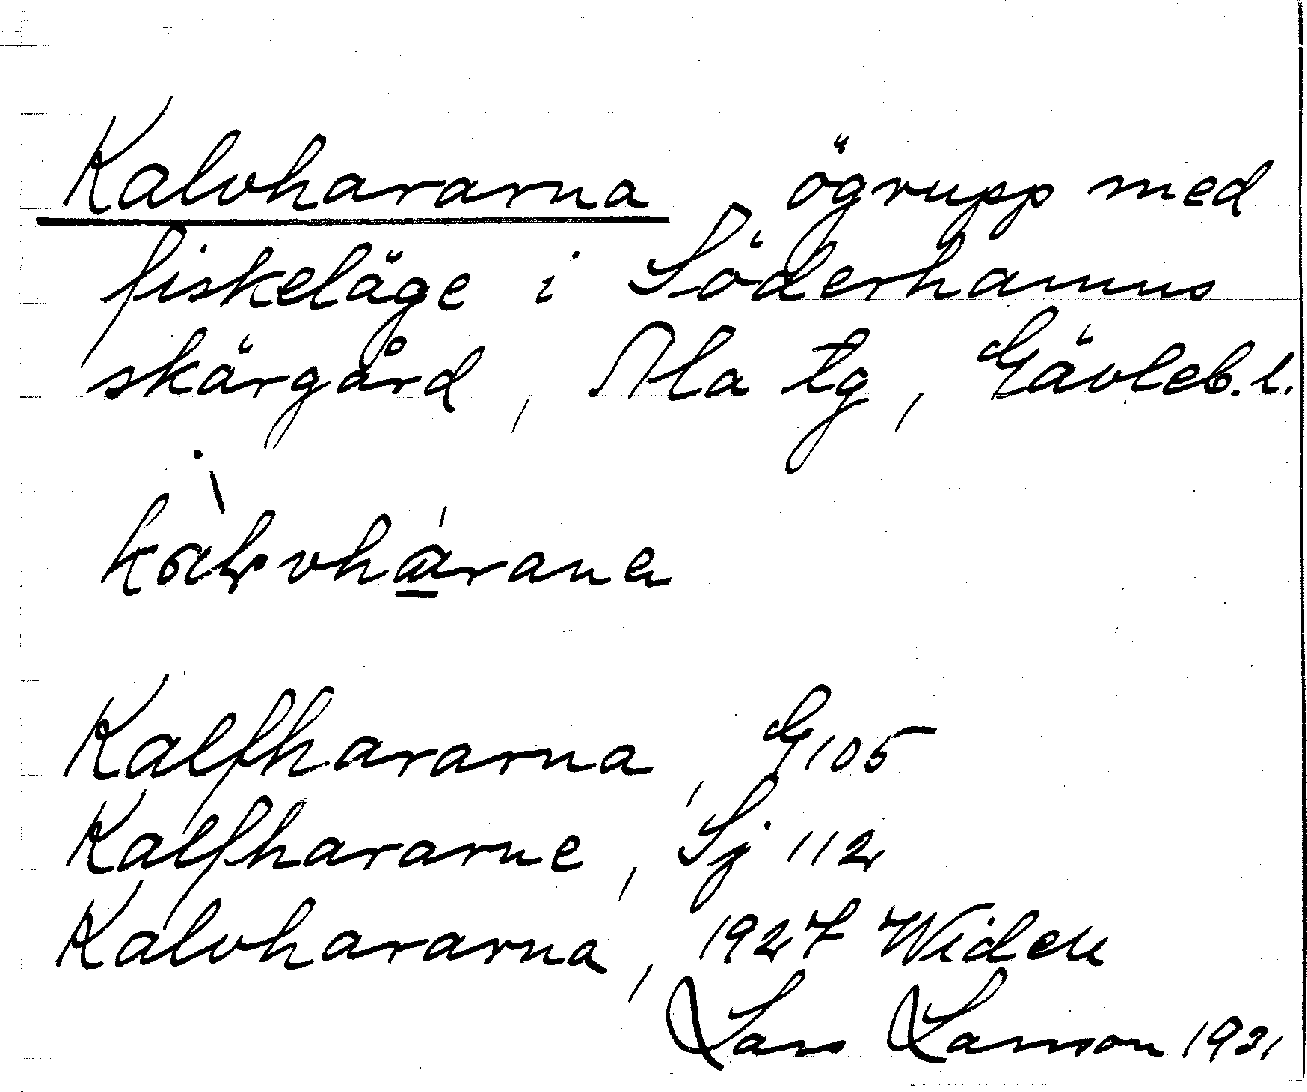 Kalvhararna, ögrupp med
fiskeläge i Söderhamns
skärgård, Ala tg, Gävleb. l.
Kalfhararna, G 105
Kalfhararne, Sj 112
Kalvhararna, 1927 Widell
Lars Larsson 1931